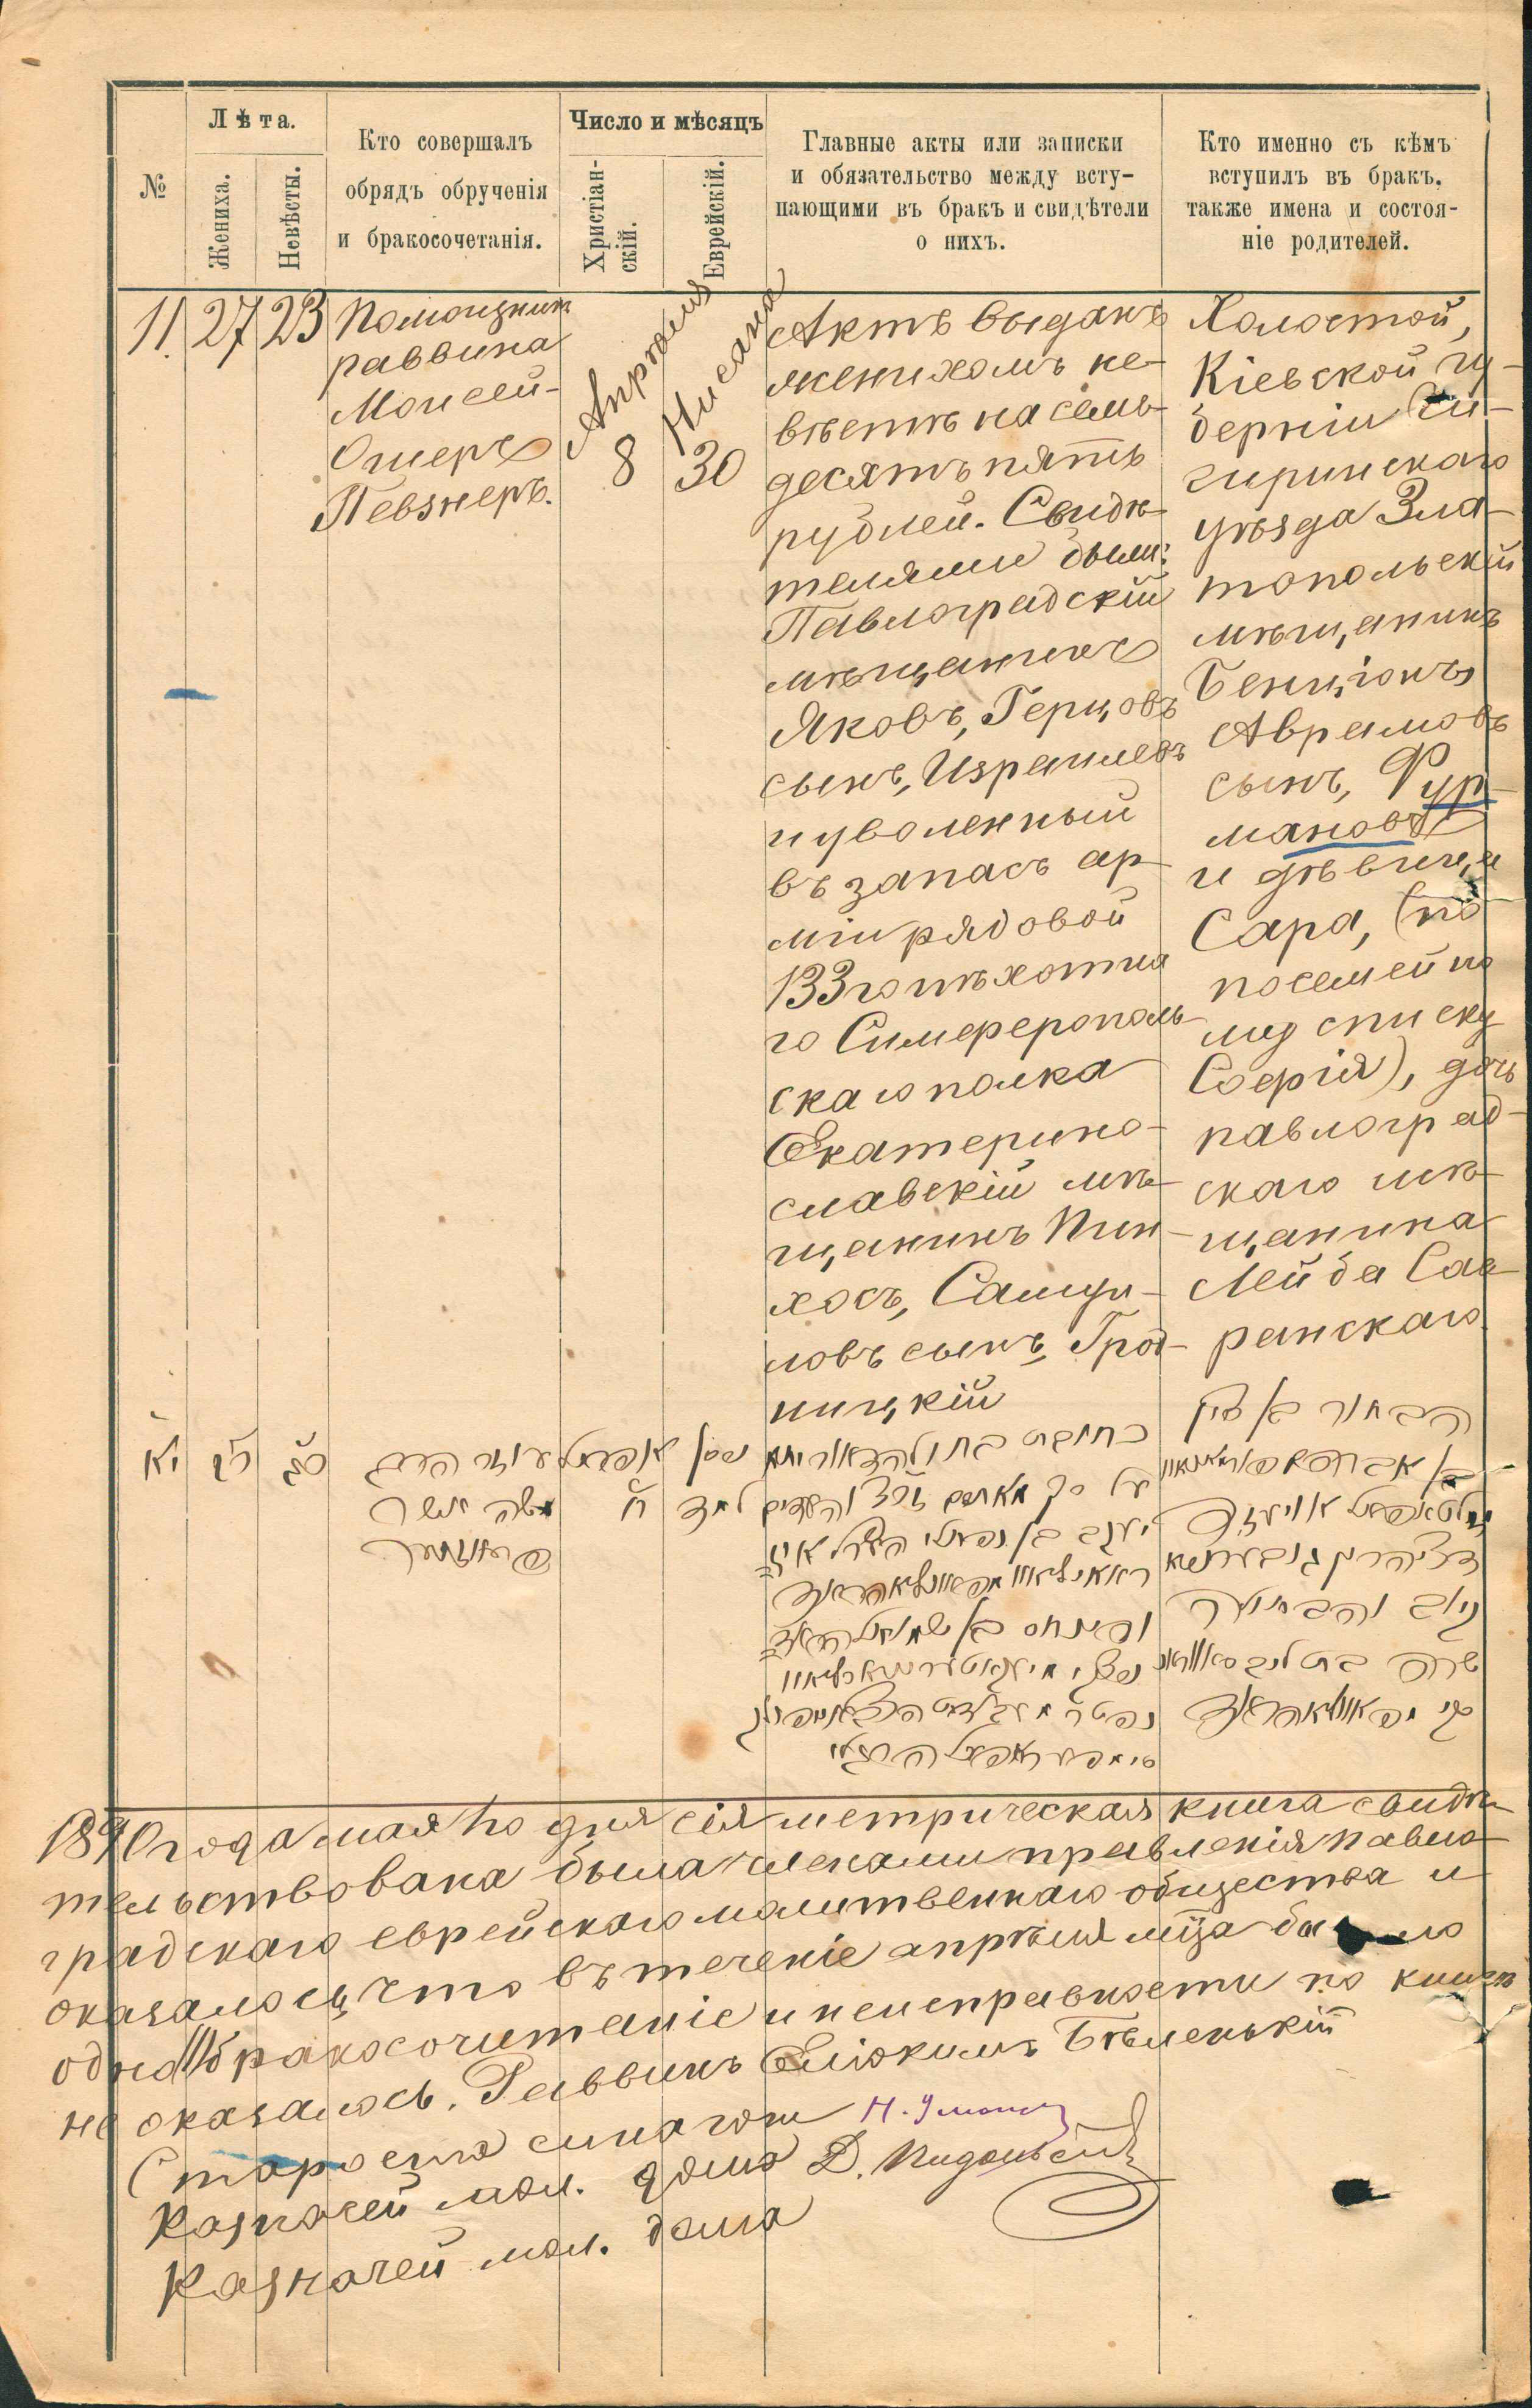 №
Лѣта.
Жениха.
Невѣсты.
Кто совершалъ
обрядъ обрученія
и бракосочетанія.
Число и мѣсяцъ
Христіан-
скій.
Еврейскій.
Главные акты или записки
и обязательство между всту-
пающими въ бракъ и свидѣтели
о нихъ.
Кто именно съ кѣмъ
вступилъ въ бракъ,
также имена и состоя-
ніе родителей.
11.
27
23
Помощник
раввина
Моисей-
Ошеръ
Певзнеръ.
Апрѣля
8
Нисана
30
Актъ выданъ
женихомъ не-
вѣстѣ на семь-
десятъ пять
рублей. Свидѣ-
телями были:
Павлоградскій
мѣщанинъ
Яковъ, Герцовъ
сынъ, Израилевъ
и уволенный
въ запасъ ар-
міи рядовой
133го пѣхотна
го Симферополь-
скаго полка
Екатерино-
славскій мѣ-
щанинъ Пин-
хосъ, Самуи-
ловъ сынъ, Грод-
ницкій
Холостой,
Кіевской гу-
берніи Чи-
гиринскаго
уѣзда Зла-
топольскій
мѣщанинъ
Бенціонъ,
Аврамовъ
сынъ, Фур-
мановъ
и дѣвица
Сара, (по
посемейно
му списку
Софія), дочь
павлоград-
скаго мѣ-
щанина
Лейба Сав-
ранскаго.
יא
כז
כג
עוזר הרב
משה אשר
פעווזנער
אפריל
ח
ניסן
ל
הבחור בן ציון
בן אברהם
והבתולה
שרה בת ליב
יעקב בן נפתלי הירץ
ופינחס בן שמואל
1890 года мая 1го дня сія метрическая книга свидѣ-
тельствована была членами правленія павло-
градскаго еврейскаго молитвеннаго общества и
оказалось, что въ теченіе апрѣля мца было
одно бракосочитаніе и неисправности по книгѣ
не оказалось. Раввинъ Еліокимъ Бѣленькій
Староста синагоги
Казначей мол. дома Д.
Казначей мол. дома